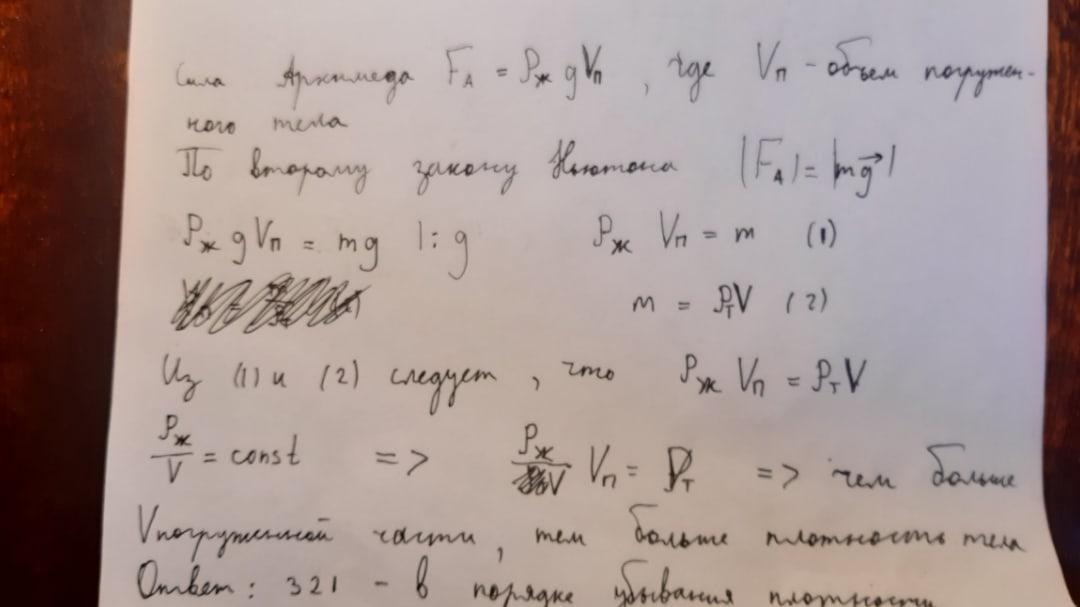 Сила Архимеда F_A = ρ_ж g V_п , где V_п - объем погружен-
ного тела
По второму закону Ньютона |F_A| = |mg⃗|
ρ_ж g V_п = mg |: g ρ_ж V_п = m (1)
m = ρ_т V (2)
Из (1) и (2) следует , что ρ_ж V_п = ρ_т V
ρ_ж / V = const => ρ_ж / V V_п = ρ_т => чем больше
V погруженной части , тем больше плотность тела
Ответ : 321 - в порядке убывания плотности